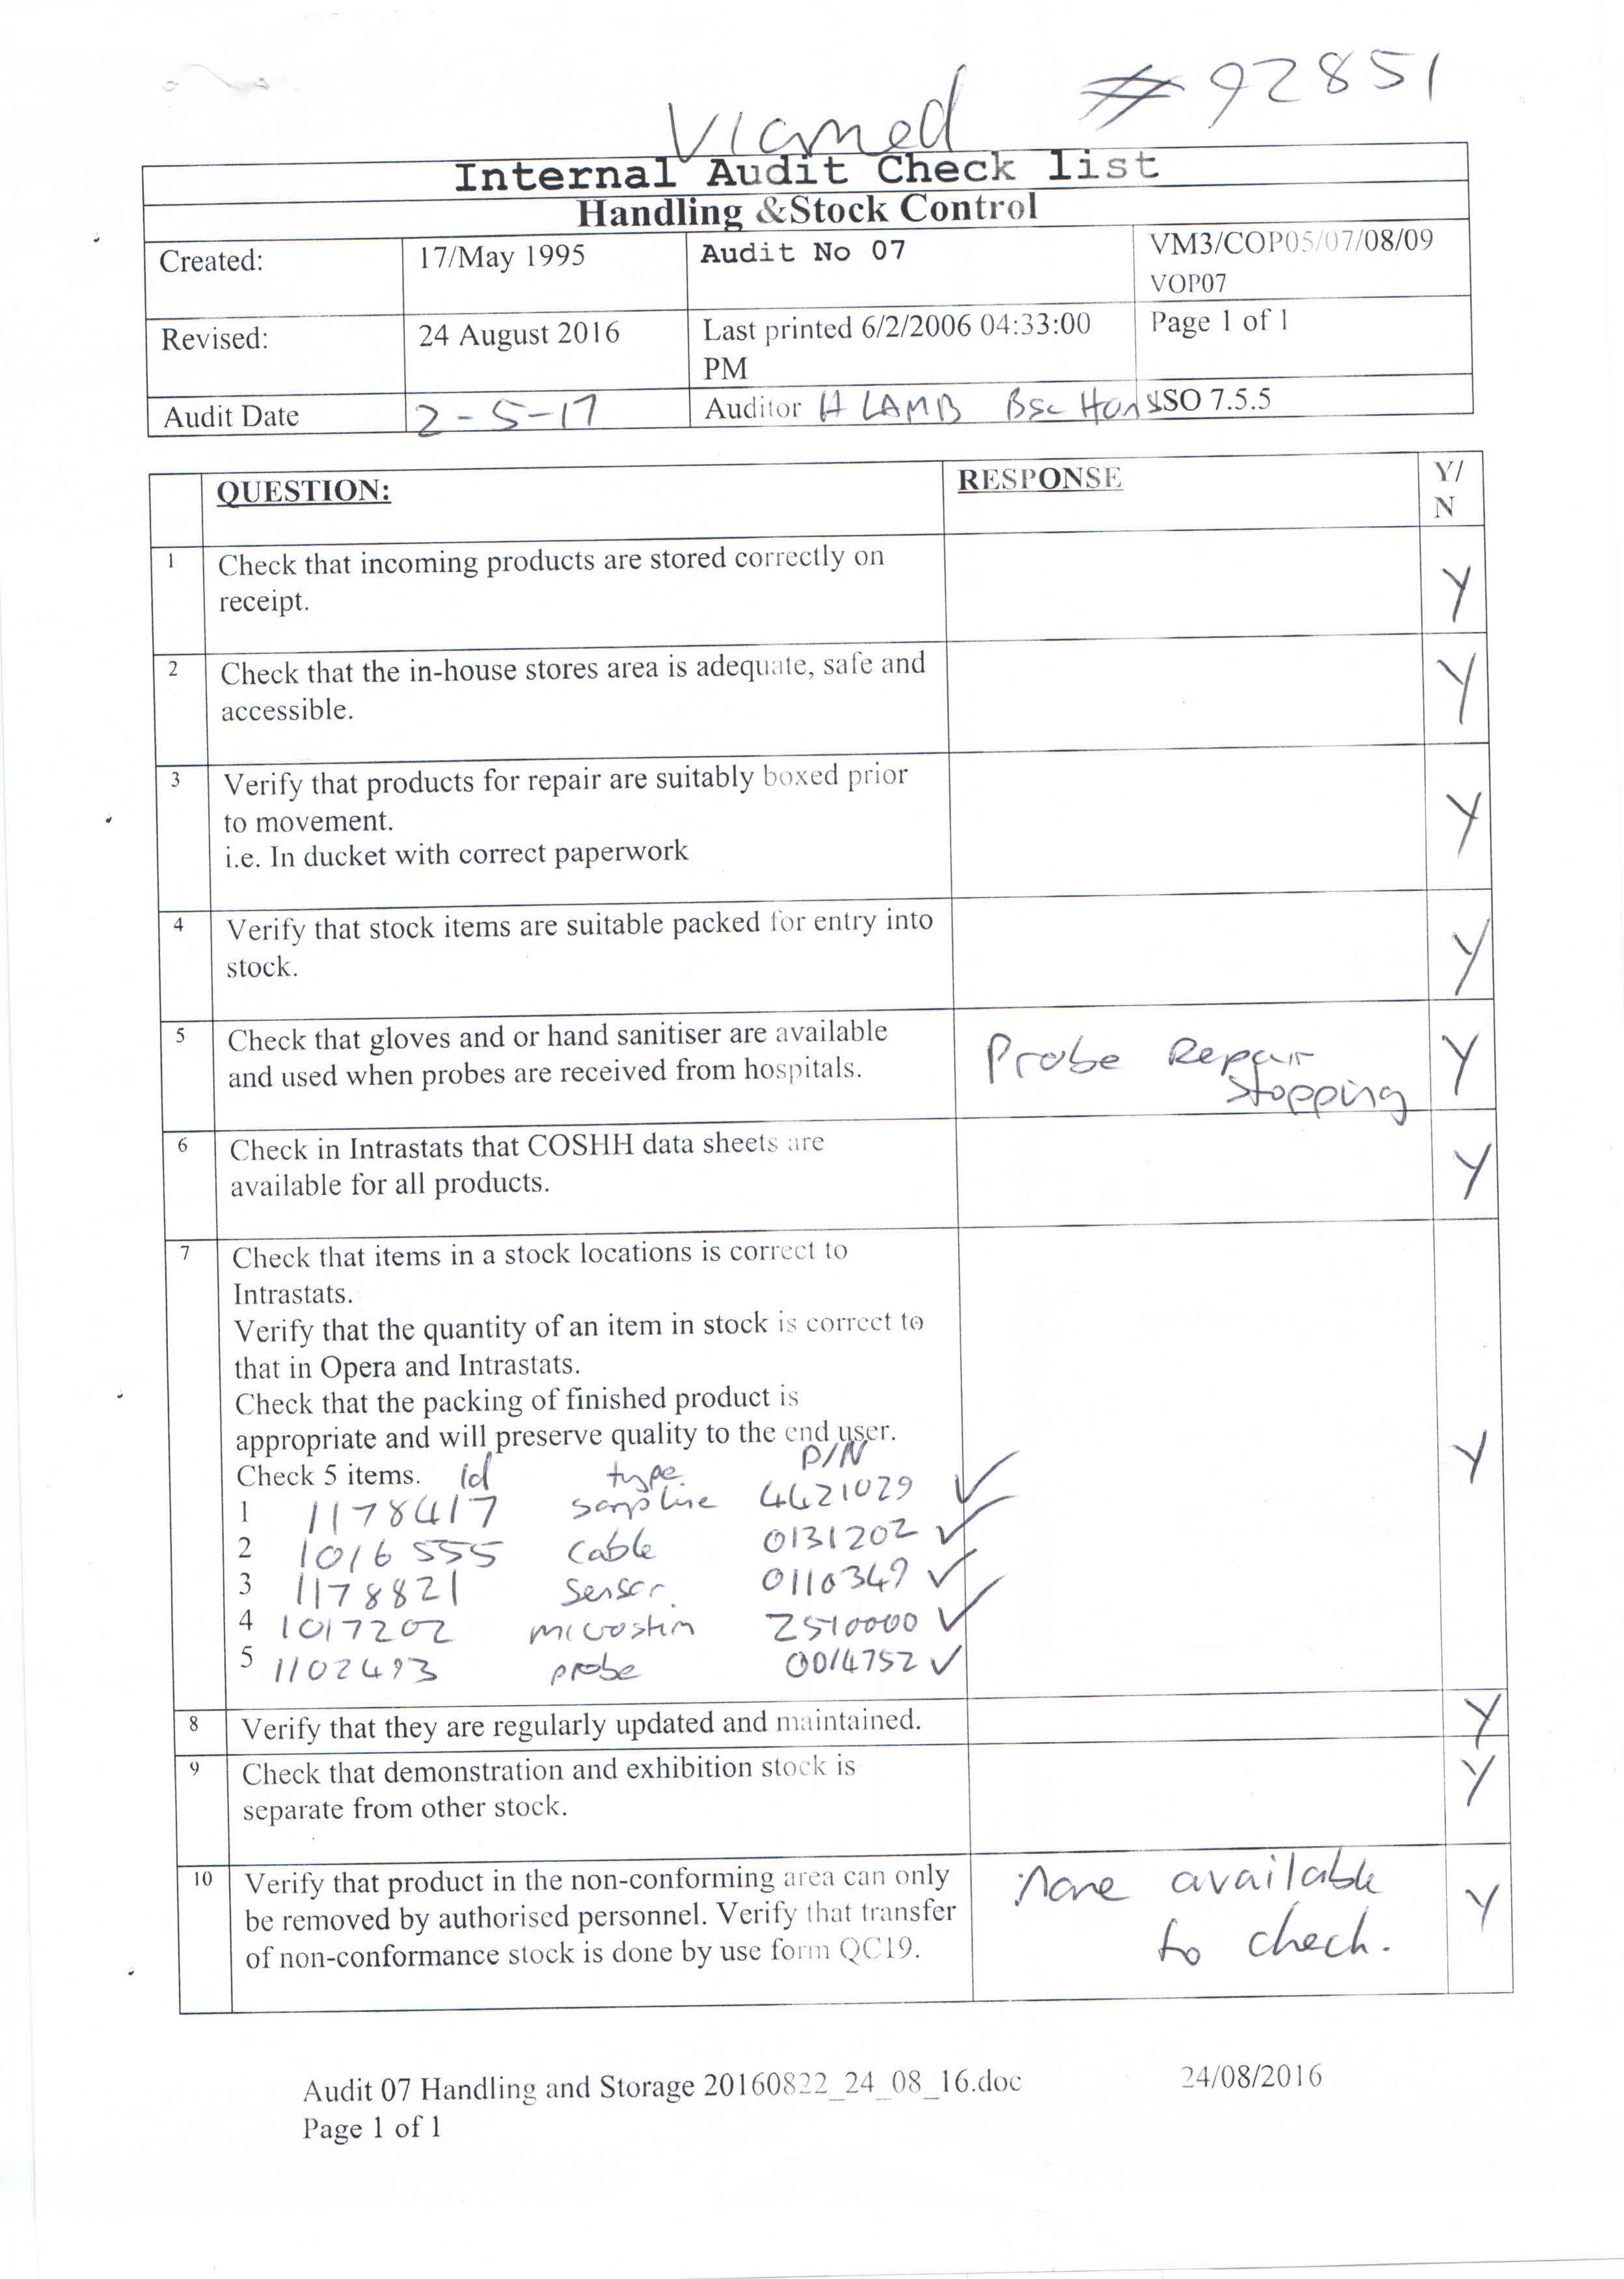 Viamed #92851
Internal Audit Check list
Handling &Stock Control
Created: 17/May 1995 Audit No 07 VM3/COP05/07/08/09
VOP07
Revised: 24 August 2016 Last printed 6/2/2006 04:33:00 Page 1 of 1
PM
Audit Date 2-5-17 Auditor H LAMB Bsc Hons ISO 7.5.5
QUESTION: RESPONSE Y/
N
1 Check that incoming products are stored correctly on
receipt. Y
2 Check that the in-house stores area is adequate, safe and
accessible. Y
3 Verify that products for repair are suitably boxed prior
to movement. Y
i.e. In ducket with correct paperwork
4 Verify that stock items are suitable packed for entry into
stock. Y
5 Check that gloves and or hand sanitiser are available Probe Repair Y
and used when probes are received from hospitals. Stopping
6 Check in Intrastats that COSHH data sheets are
available for all products. Y
7 Check that items in a stock locations is correct to
Intrastats.
Verify that the quantity of an item in stock is correct to
that in Opera and Intrastats.
Check that the packing of finished product is
appropriate and will preserve quality to the end user. Y
Check 5 items. Id type P/N
1 1178417 sampline 4421029 ✓
2 1016555 cable 0131202 ✓
3 1178821 Sensor 0110349 ✓
4 1017202 microstim 2510000 ✓
5 1102493 probe 0014752 ✓
8 Verify that they are regularly updated and maintained. Y
9 Check that demonstration and exhibition stock is Y
separate from other stock.
10 Verify that product in the non-conforming area can only None available
be removed by authorised personnel. Verify that transfer to check. Y
of non-conformance stock is done by use form QC19.
Audit 07 Handling and Storage 20160822_24_08_16.doc 24/08/2016
Page 1 of 1